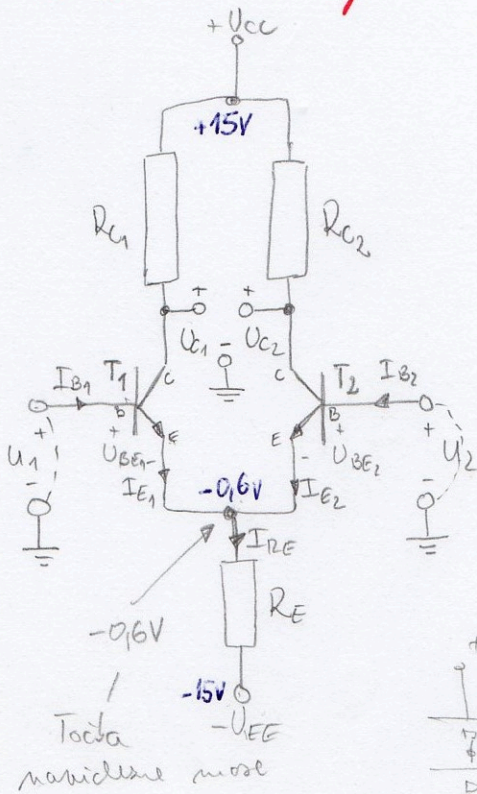 +UCC
+15V
RC1
RC2
+ +
UC1 - UC2
IB1 T1 C C T2 IB2
+ B B +
U1 UBE1 E E UBE2 U2
- IE1 -0,6V IE2 -
IRE
RE
-0,6V
-15V
-UEE
Točka
mase